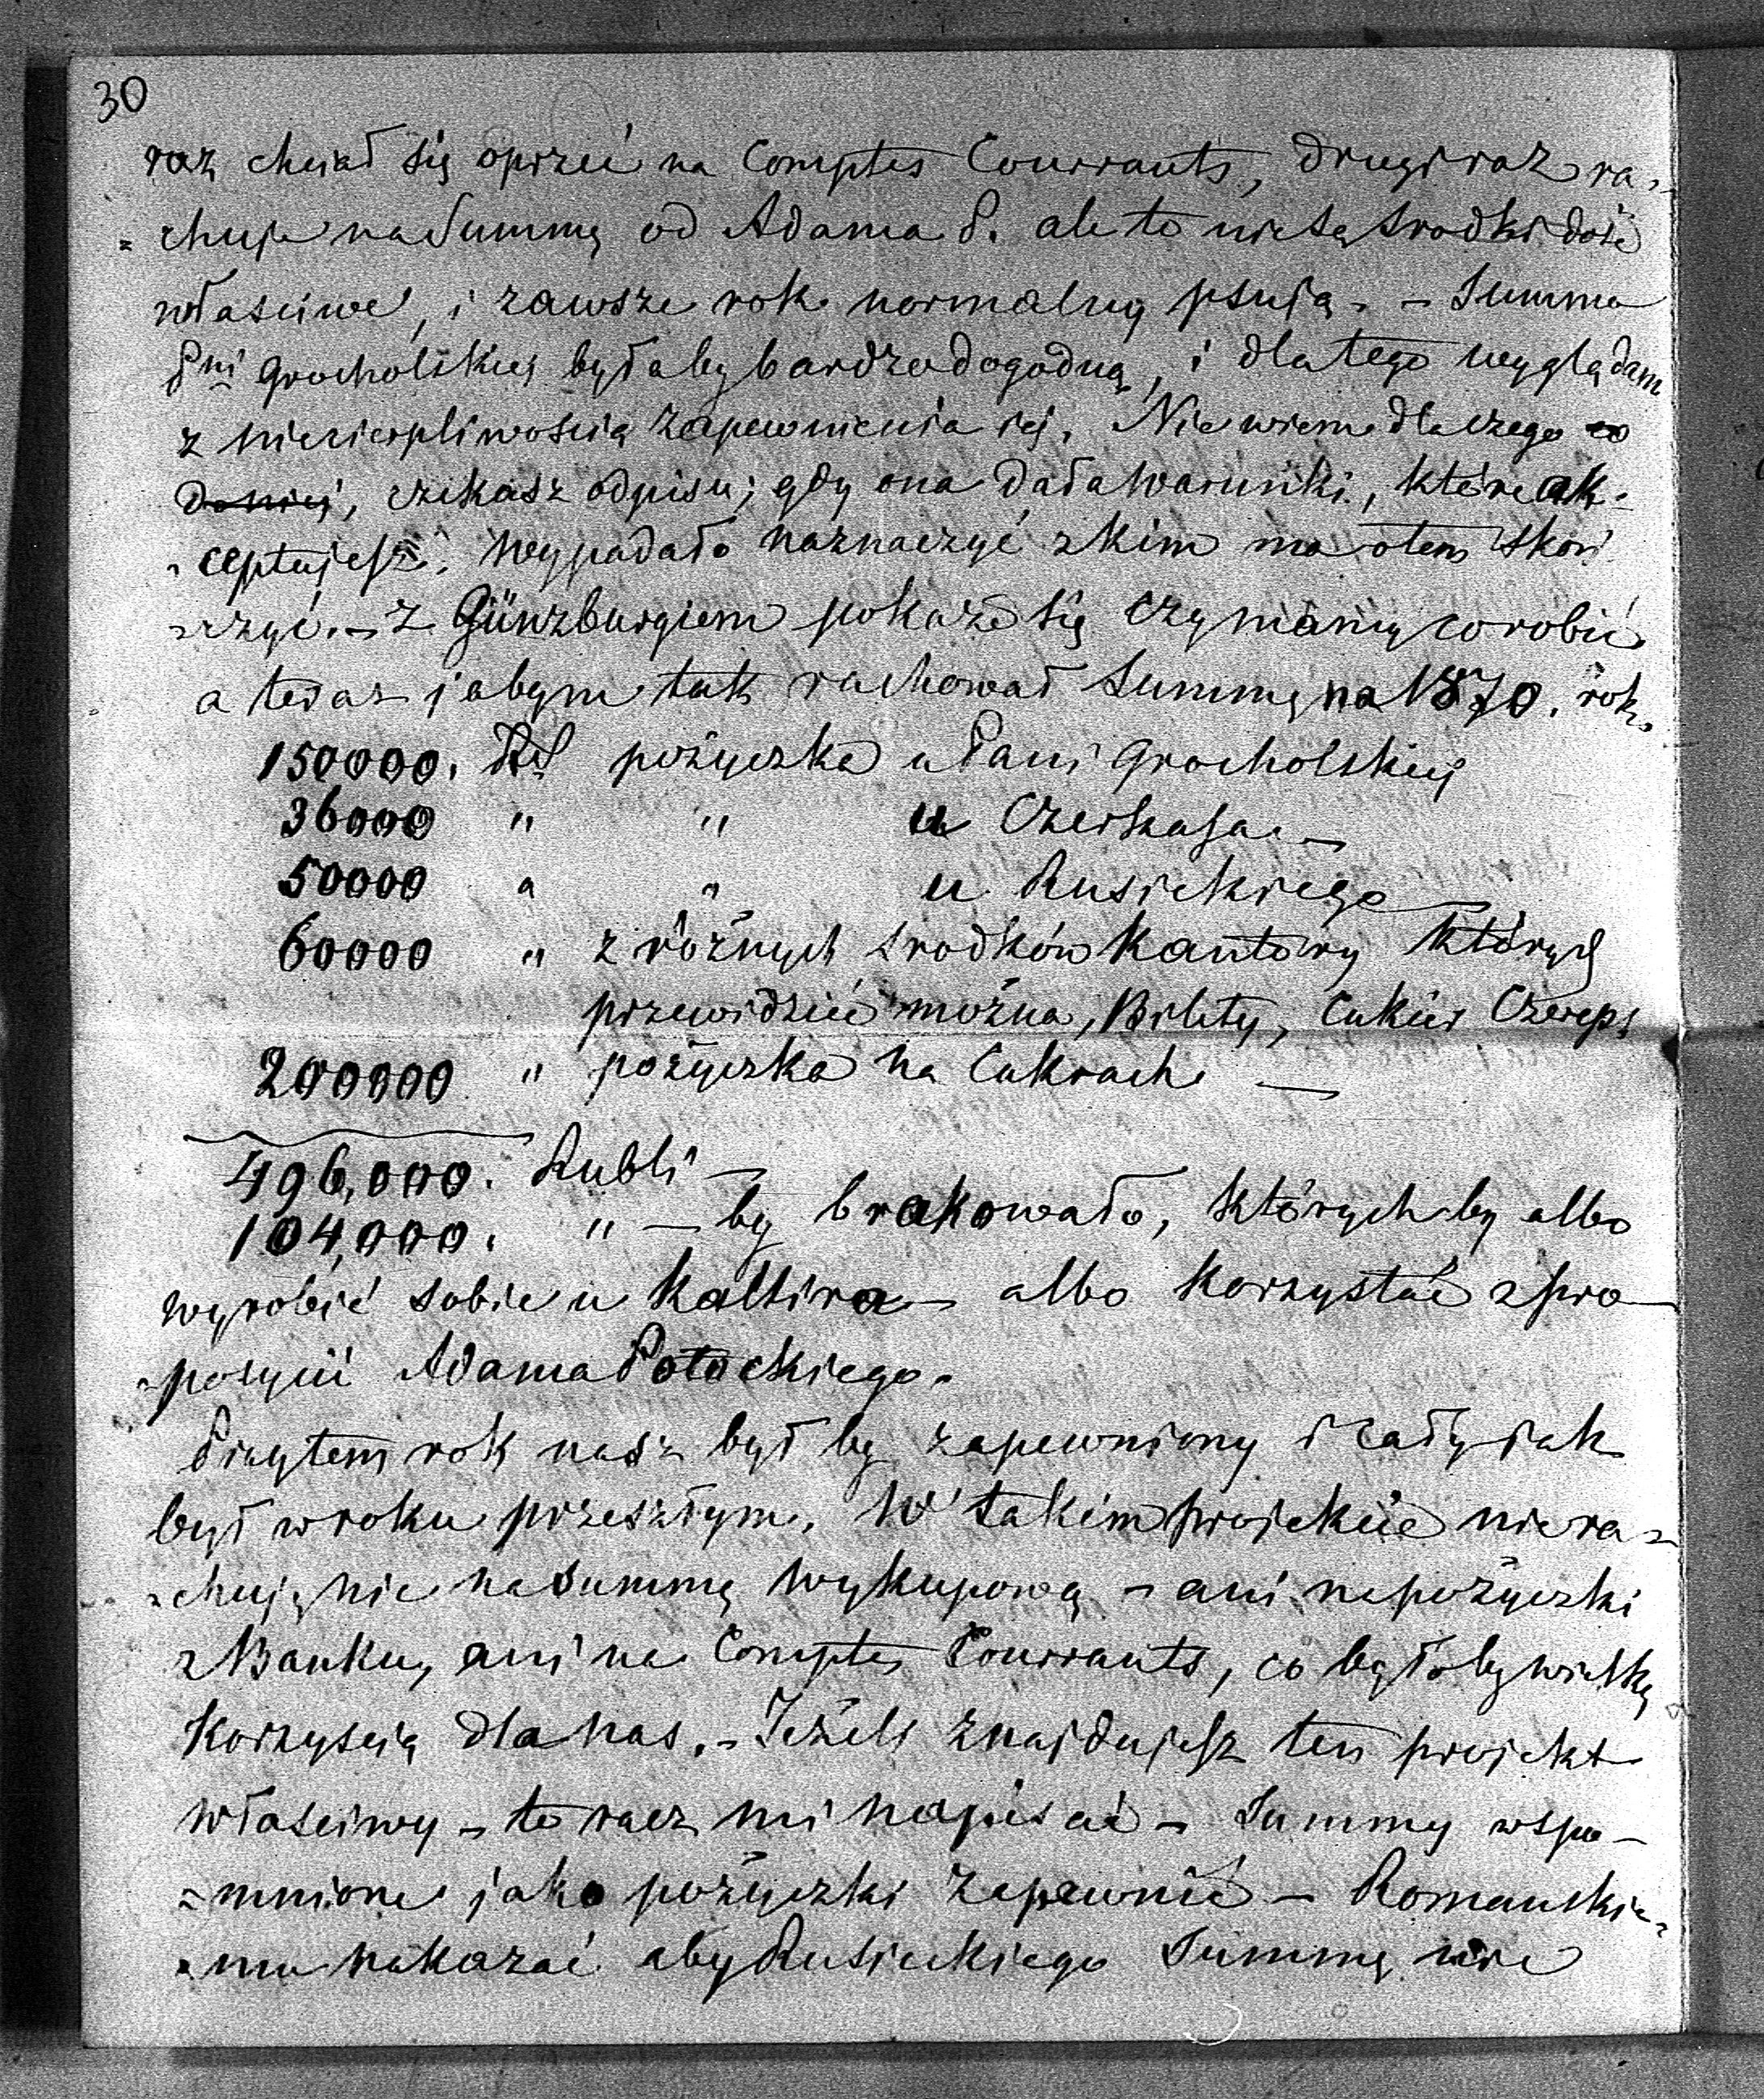 30
raz chciał się oprzeć na Comptes Courrants, drugi raz ra-
=chuje na Summę od Adama P. ale to nie są środki dość
właściwe, i zawsze rok normalny psują. - Summa
Pni Grocholskiej byłaby bardzo dogodną, i dla tego wyglądam
z niecierpliwością zapewnienia jej. Nie wiem dla czego co
do niej, czekasz odpisu; gdy ona dała warunki, które ak-
=ceptujesz. Wypadało naznaczyć z kim ma o tem skoń
=czyć. - Z Günzburgiem pokaże się czy mamy co robić
a teraz jabym tak rachował Summę na 1870. rok.
150000. RS pożyczka u Pani Grocholskiej
36000 " " u Czerkasa -
50000 " " u Rusickiego -
60000 " z różnych środków Kantory których
przewidzieć można, Bilety, Cukier Czerep:
200000 " pożyczka na Cukrach -
496,000. Rubli -
104,000. " - by brakowało, których by albo
wyrobić sobie u Kallira - albo korzystać z pro
=pozycii Adama Potockiego.
Przytem rok nasz był by zapewniony i cały jak
był w roku przeszłym. W takim projekcie nie ra-
=chuję nic na Summę wykupową - ani na pożyczki
z Banku, ani na Comptes Courrants, co byłoby wielką
korzyścią dla nas. - Jeżeli znajdujesz ten projekt
właściwy - to racz mi napisać - Summy wspo-
=mnione jako pożyczki zapewnić - Romanskie-
=mu nakazać aby Rusieckiego Summę nie